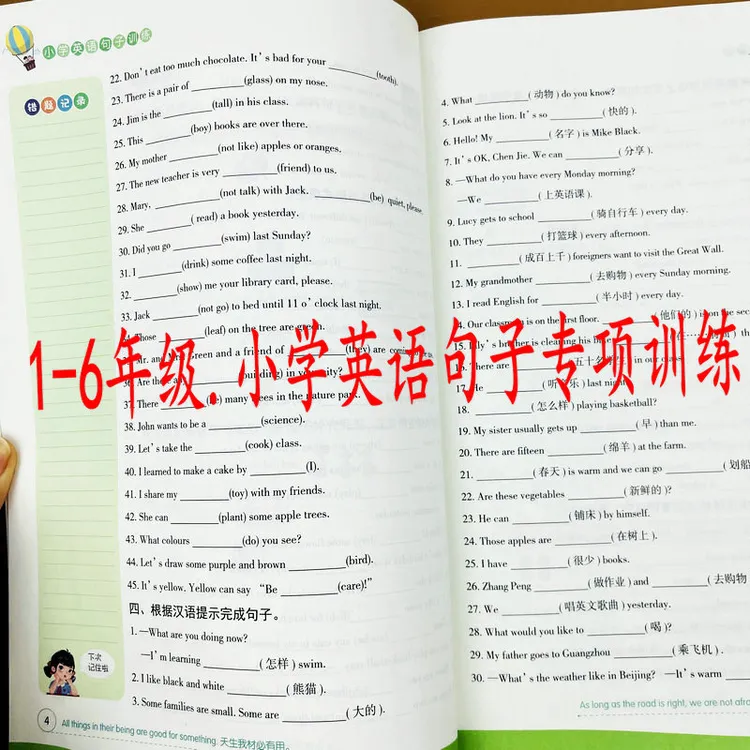 小学英语句子训练
错题记录
22. Don't eat too much chocolate. It's bad for your ________(tooth).
23. There is a pair of ________(glass) on my nose.
24. Jim is the ________(tall) in his class.
25. This ________(boy) books are over there.
26. My mother ________(not like) apples or oranges.
27. The new teacher is very ________(friend) to us.
28. Mary, ________(not talk) with Jack. ________(be) quiet, please.
29. She ________( read) a book yesterday.
30. Did you go ________(swim) last Sunday?
31. I ________(drink) some coffee last night.
32. ________(show) me your library card, please.
33. Jack ________(not go) to bed until 11 o'clock last night.
Those ________(leaf) on the tree are green.
Mr. and Mrs. Green and a friend of ________(they) are coming
36. Are there any ________(building) in your city?
37. There ________(be) many trees in the nature park.
38. John wants to be a ________(science).
39. Let's take the ________(cook) class.
40. I learned to make a cake by ________(I).
41. I share my ________(toy) with my friends.
42. She can ________(plant) some apple trees.
43. What colours ________(do) you see?
44. Let's draw some purple and brown ________(bird).
45. It's yellow. Yellow can say "Be ________(care)!"
四、根据汉语提示完成句子。
1. —What are you doing now?
—I'm learning ________( 怎样 ) swim.
2. I like black and white ________( 熊猫 ).
3. Some families are small. Some are ________( 大的 ).
下次
记住啦
4
All things in their being are good for something. 天生我材必有用。
4. What ________( 动物 ) do you know?
5. Look at the lion. It's so ________( 快的 ).
6. Hello! My ________( 名字 ) is Mike Black.
7. It's OK, Chen Jie. We can ________( 分享 ).
8. —What do you have every Monday morning?
—We ________( 上英语课 ).
9. Lucy gets to school ________( 骑自行车 ) every day.
10. They ________( 打篮球 ) every afternoon.
11. ________( 成百上千 ) foreigners want to visit the Great Wall.
12. My grandmother ________( 去购物 ) every Sunday morning.
13. I read English for ________( 半小时 ) every day.
14. Our classroom is on the first floor. ________( 他们的 ) is on the sec
15. Lily's brother is cleaning his
16. There are ________ 五十名 in our class.
17. He ________( 听音乐 ) last night.
18. ________( 怎么样 ) playing basketball?
19. My sister usually gets up ________( 早 ) than me.
20. There are fifteen ________( 绵羊 ) at the farm.
21. ________( 春天 ) is warm and we can go ________( 划船
22. Are these vegetables ________( 新鲜的 )?
23. He can ________( 铺床 ) by himself.
24. Those apples are ________( 在树上 ).
25. I have ________( 很少 ) books.
26. Zhang Peng ________( 做作业 ) and ________( 去购物
27. We ________( 唱英文歌曲 ) yesterday.
28. What would you like to ________( 喝 )?
29. My father goes to Guangzhou ________( 乘飞机 ).
30. —What's the weather like in Beijing? —It's warm ________
As long as the road is right, we are not afra
1-6年级.小学英语句子专项训练